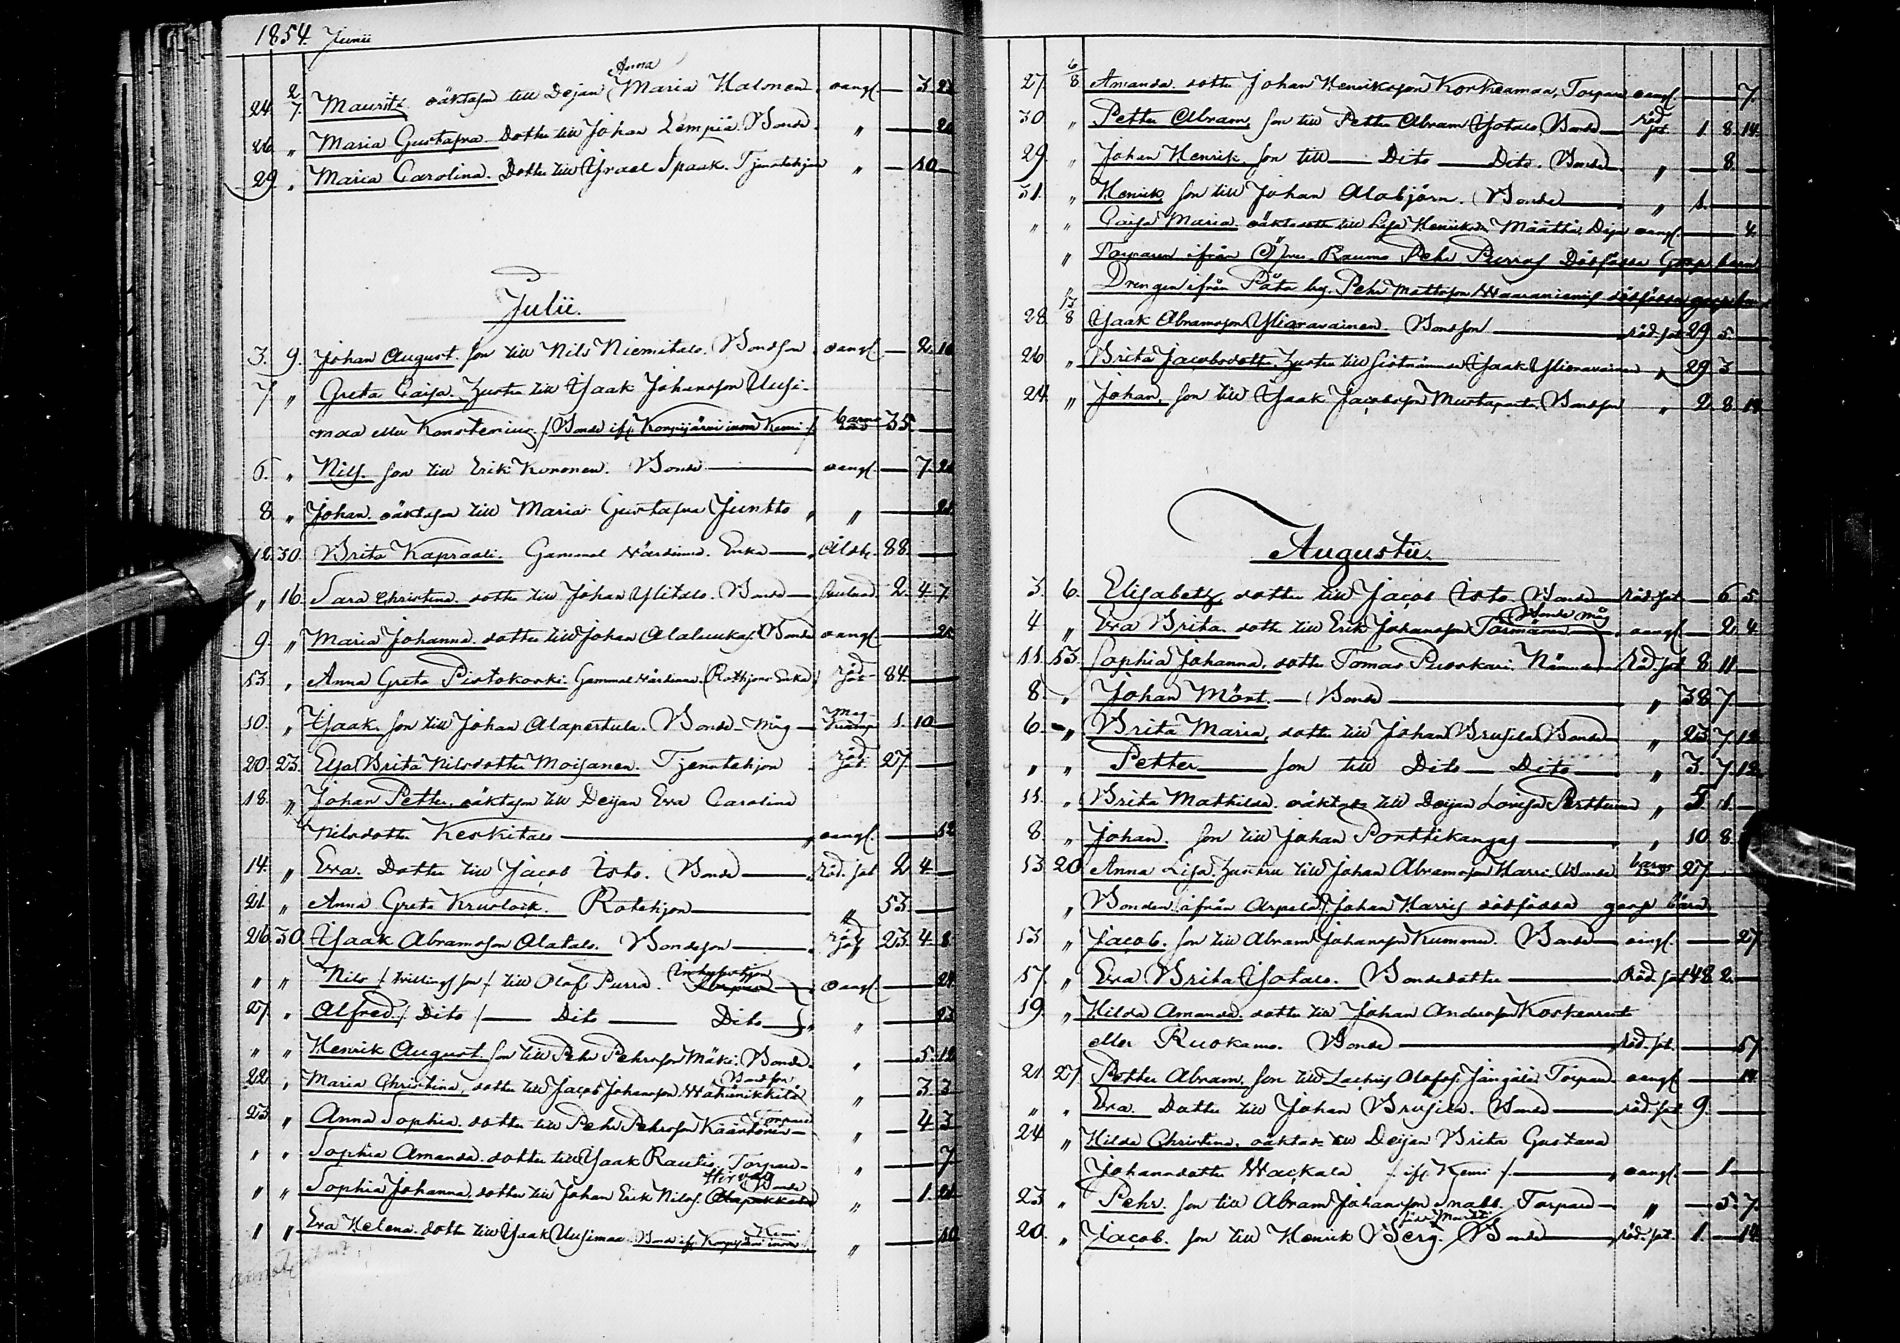 1854. Junii
24. 2/7. Mauritz oäktason till Dejan Anna Maria Halonen oangf — 3 23
26. „ Maria Gustafva. Dotter till Johan Lempiä. Bonde. „ — 20
29. „ Maria Carolina. Dotter till Israel Spaak. Tjenstehjon „ — 10 —
Julii.
3. 9. Johan August. son till Nils Niemitalo. Bondeson oangf — 2. 16
7. „ Greta Caisa. Hustru till Isaak Johansson Uusi-
maa eller Konsterius / Bonde ifr. Korpijärvi inom Kemi / barns 35 —
6. „ Nils. son till Erik Kuronen. Bonde — oangf. — 7.
8. „ Johan. oäktason till Maria Gustafva Juntto „ „ — 21
12. 30. Brita Kapraali. Gammal Värdinna. Enka — Åldr. 88 —
„ 16. Sara Christina. dotter till Johan Ylitalo. Bonde — 2. 4. 7
9. „ Maria Johanna. dotter till Johan Alaluukas. Bonde oangf — 25
13. „ Anna Greta Pistokoski. Gammal Värdinna. (Rothjons Enka) Röd sot 84 —
10. „ Isaak. son till Johan Alapertula. Bonde-Måg — 1. 10 —
20. 23. Elsa Brita Nilsdotter Moisanen. Tjenstehjon Röd sot 27 —
18. „ Johan Petter. oäktason till Deijan Eva Carolina
Nilsdotter Keskitalo — oangf. — 12
14. „ Eva. Dotter till Jacob Isto. Bonde — röd. sot 2. 4. —
21. „ Anna Greta Kruslock. Rotehjon — „ 53 —
26. 30. Isaak Abramsson Alatalo. Bondeson — röd sot 23. 4. 8.
„ „ Nils / trillings son / till Olof Purra. Inhyseshjon oangf. — 24
27. „ Alfred / Dito / — Dito — Dito — „ — 25
„ „ Henrik August. son till Pehr Pehrsson Mäki. Bonde. „ — 5. 12
22. „ Maria Christina. dotter till Jacob Johansson Wähänikkilä Bondson „ — 3 3
23. „ Anna Sophia. dotter till Pehr Pehrsson Kääriäinen Torpare „ — 4 3
„ „ Sophia Amanda. dotter till Isaak Rautio. Torpare — „ — 7
„ „ Sophia Johanna. dotter till Johan Erik Nilss. Hirvas Bonde „ — 1. 21
„ „ Eva Helena. dotter till Isaak Uusimaa. Bonde ifr. Korpijärvi inom Kemi „ — 10
27. 6/8 Amanda. dotter Johan Henriksson Korkeamaa, Torpare oangf — 7.
30 „ Petter Abram, son till Petter Abram Yotalo. Bonde — röd sot 1. 8. 14.
29. „ Johan Henrik. son till — Dito — Dito. Bonde — „ — 8. —
31. „ Henrik son till Johan Alabjörn. Bonde — „ 1. —
„ „ Caisa Maria. oäktadotter till Lisa Henriksd. Määttä, Deja oangf. — 4.
„ Torparen ifrån Öfver Raumo Pehr Purras Dödfödda Gosse barn
Drengen ifrån Påta by. Pehr Mattsson Waaraniemis dödfödda gosse barn
28. 13/8 Isaak Abramsson Yliaravainen. Bondson — röd. sot 29 5. —
26. „ Brita Jacobsdotter. Hustru till Sistnämnda Isaak Yliaravainen „ 29 3 —
24. „ Johan. son till Isaak Jacobsson Mustaparta. Bondeson „ 2. 8. 14.
Augustii.
3. 6. Elisabeth dotter till Jacob Isto. Bonde — röd. sot — 6 5.
4 „ Eva Brita. dotter till Erik Johansson Törmänen Bonde måg oangf. — 2. 4
11. 13. Sophia Johanna. dotter Tomas Puoskari. Nämnd. Röd. sot 8. 11 —
8. „ Johan Mört. — Bonde — „ 38 7 —
6. „ Brita Maria. dotter till Johan Brusila. Bonde — „ 23 7 12
„ „ Petter — son till Dito — Dito — „ 3. 7. 12.
11. „ Brita Mathilda. oäktad. till Deijan Lovisa Perttunen „ 5 1. —
8. „ Johan. son till Johan Porttikangas — „ 10. 8.
13. 20. Anna Lisa. Hustru till Johan Abramsson Harri. Bonde barns 27. —
„ Bonden ifrån Arpela. Johan Harris dödfödda gosse barn.
13 „ Jacob. son till Abram Johansson Kummu. Bonde — oangf. — 27
17. „ Eva Brita Yotalo. Bondedotter — Röd. sot 48 2. —
19. „ Hilda Amanda. dotter till Johan Andersson Koskenranta
eller Ruokamo. Bonde — Röd. sot. — 17
21. 27. Petter Abram. son till Zachris Olofss. Jängälä. Torpare — oangf. — 14
„ „ Eva. Dotter till Johan Brusila. Bonde — röd. sot 9. —
24 „ Hilda Christina. oäktad. till Deijan Brita Gustava
Johansdotter Wackala / ifr. Kemi / — oangf — 1. —
23 „ Pehr. son till Abram Johansson Snabb. Torpare — „ — 5. 7.
20. „ Jacob. son till Henrik Berg. Bonde — röd. sot. 1. — 14.